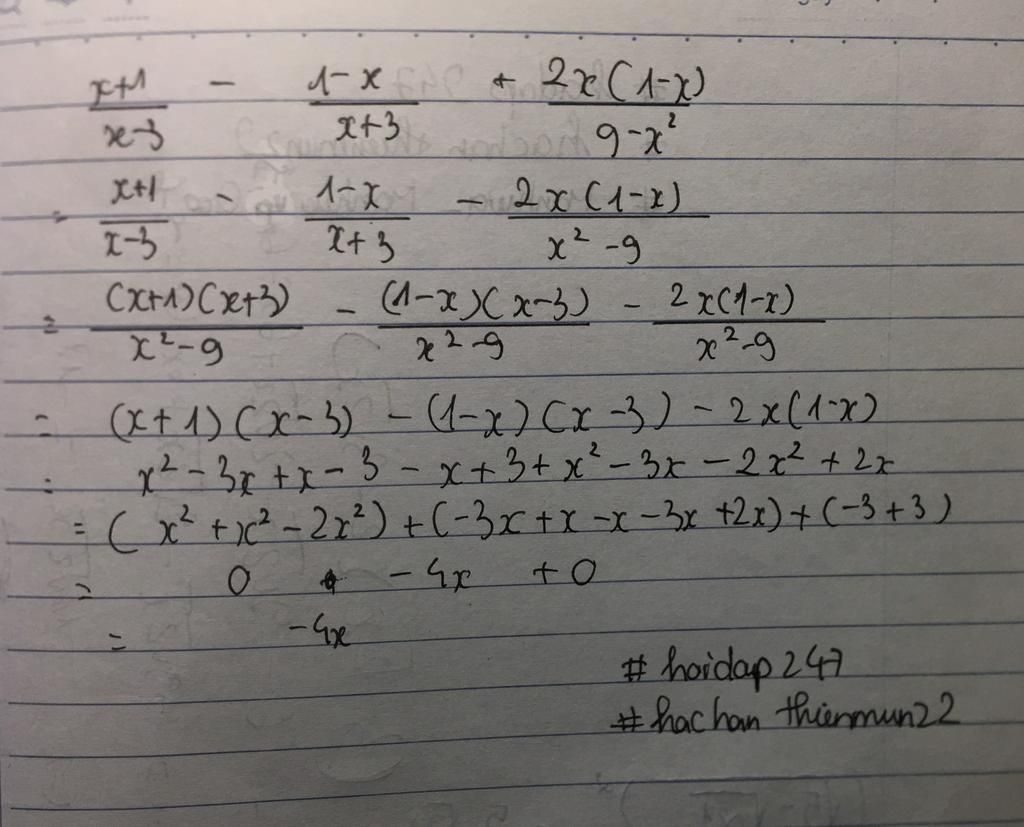 x+1/x-3 - 1-x/x+3 + 2x(1-x)/9-x²
= x+1/x-3 - 1-x/x+3 - 2x(1-x)/x²-9
= (x+1)(x+3)/x²-9 - (1-x)(x-3)/x²-9 - 2x(1-x)/x²-9
= (x+1)(x-3) - (1-x)(x-3) - 2x(1-x)
= x²-3x+x-3-x+3+x²-3x-2x²+2x
= (x²+x²-2x²)+(-3x+x-x-3x+2x)+(-3+3)
= 0 + -4x +0
= -4x
# hoidap247
# hachan thienmun22